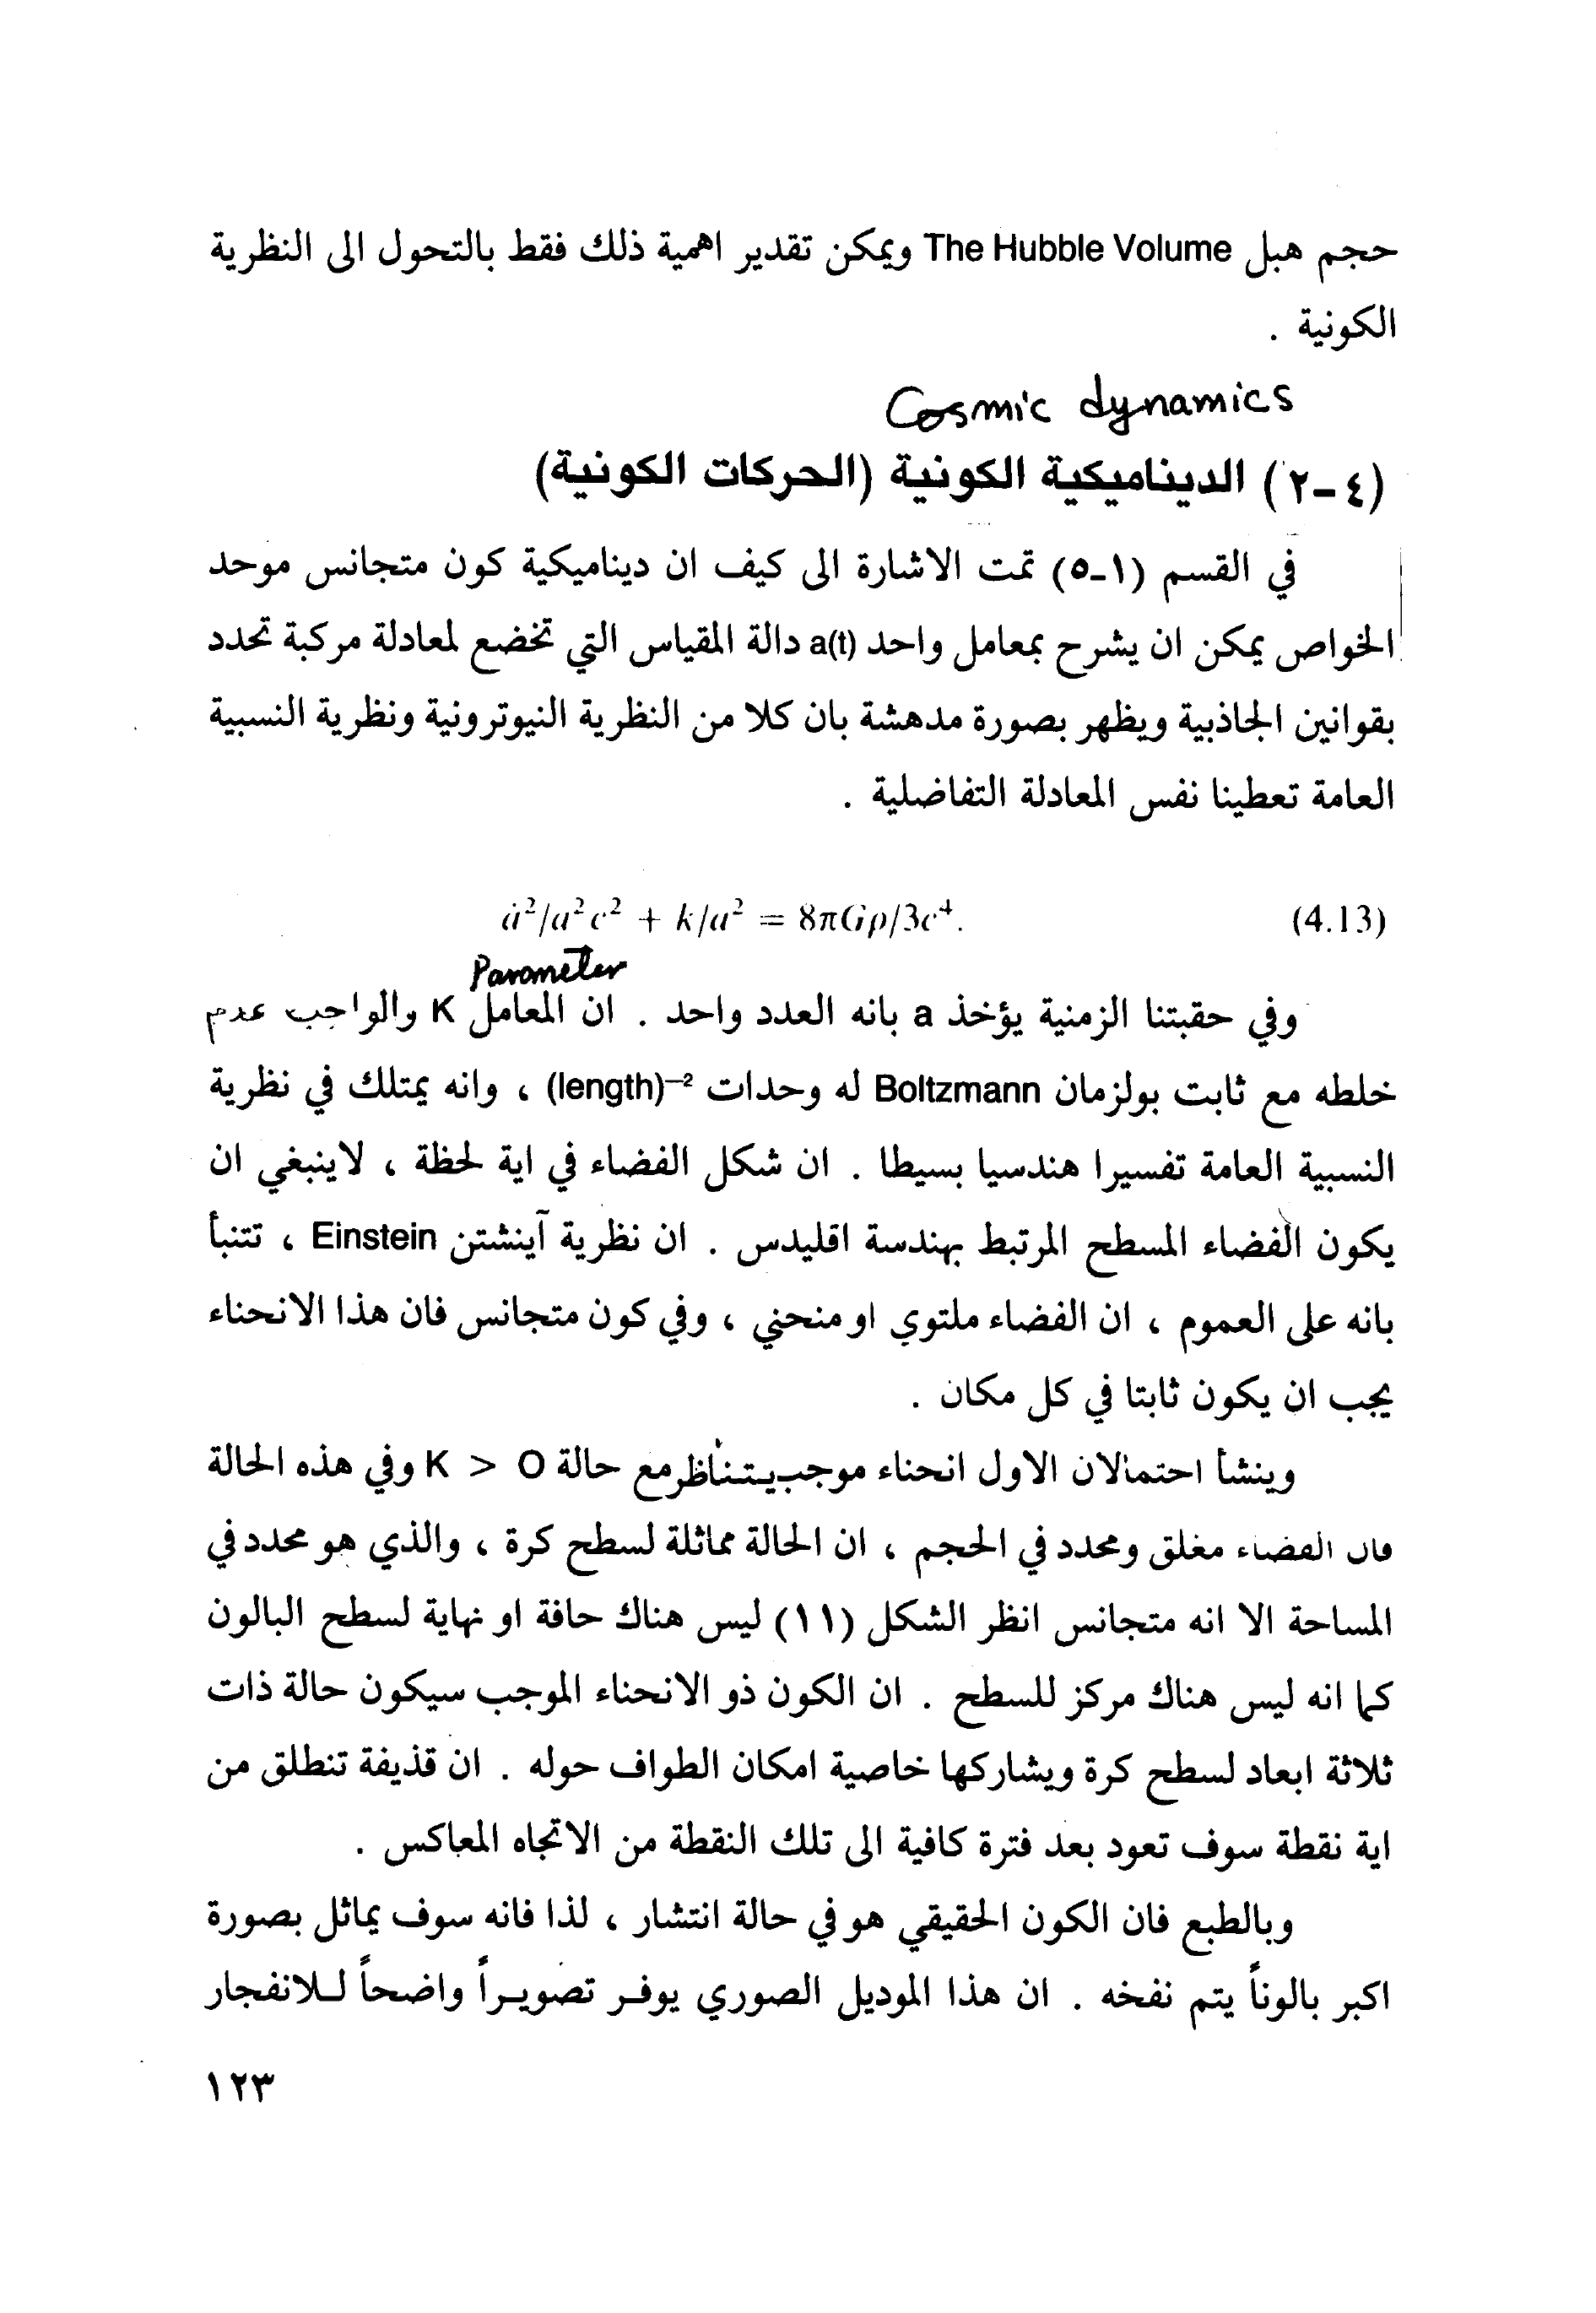 حجم هبل The Hubble Volume ويمكن تقدير اهمية ذلك فقط بالتحول الى النظرية
الكونية .
Cosmic dynamics
(٤-٢) الديناميكية الكونية (الحركات الكونية)
في القسم (١-٥) تمت الاشارة الى كيف ان ديناميكية كون متجانس موحد
الخواص يمكن ان يشرح بمعامل واحد a(t) دالة المقياس التي تخضع لمعادلة مركبة تحدد
بقوانين الجاذبية ويظهر بصورة مدهشة بان كلا من النظرية النيوترونية ونظرية النسبية
العامة تعطينا نفس المعادلة التفاضلية .
ȧ²/a²c² + k/a² = 8πGρ/3c⁴. (4.13)
Parameter
وفي حقبتنا الزمنية يؤخذ a بانه العدد واحد . ان المعامل K والواجب عدم
خلطه مع ثابت بولزمان Boltzmann له وحدات (length)⁻² ، وانه يمتلك في نظرية
النسبية العامة تفسيرا هندسيا بسيطا . ان شكل الفضاء في اية لحظة ، لاينبغي ان
يكون الفضاء المسطح المرتبط بهندسة اقليدس . ان نظرية آينشتن Einstein ، تتنبأ
بانه على العموم ، ان الفضاء ملتوي او منحني ، وفي كون متجانس فان هذا الانحناء
يجب ان يكون ثابتا في كل مكان .
وينشأ احتمالان الاول انحناء موجب يتناظر مع حالة K > O وفي هذه الحالة
فان الفضاء مغلق ومحدد في الحجم ، ان الحالة مماثلة لسطح كرة ، والذي هو محدد في
المساحة الا انه متجانس انظر الشكل (١١) ليس هناك حافة او نهاية لسطح البالون
كما انه ليس هناك مركز للسطح . ان الكون ذو الانحناء الموجب سيكون حالة ذات
ثلاثة ابعاد لسطح كرة ويشاركها خاصية امكان الطواف حوله . ان قذيفة تنطلق من
اية نقطة سوف تعود بعد فترة كافية الى تلك النقطة من الاتجاه المعاكس .
وبالطبع فان الكون الحقيقي هو في حالة انتشار ، لذا فانه سوف يماثل بصورة
اكبر بالوناً يتم نفخه . ان هذا الموديل الصوري يوفر تصويراً واضحاً للانفجار
١٢٣